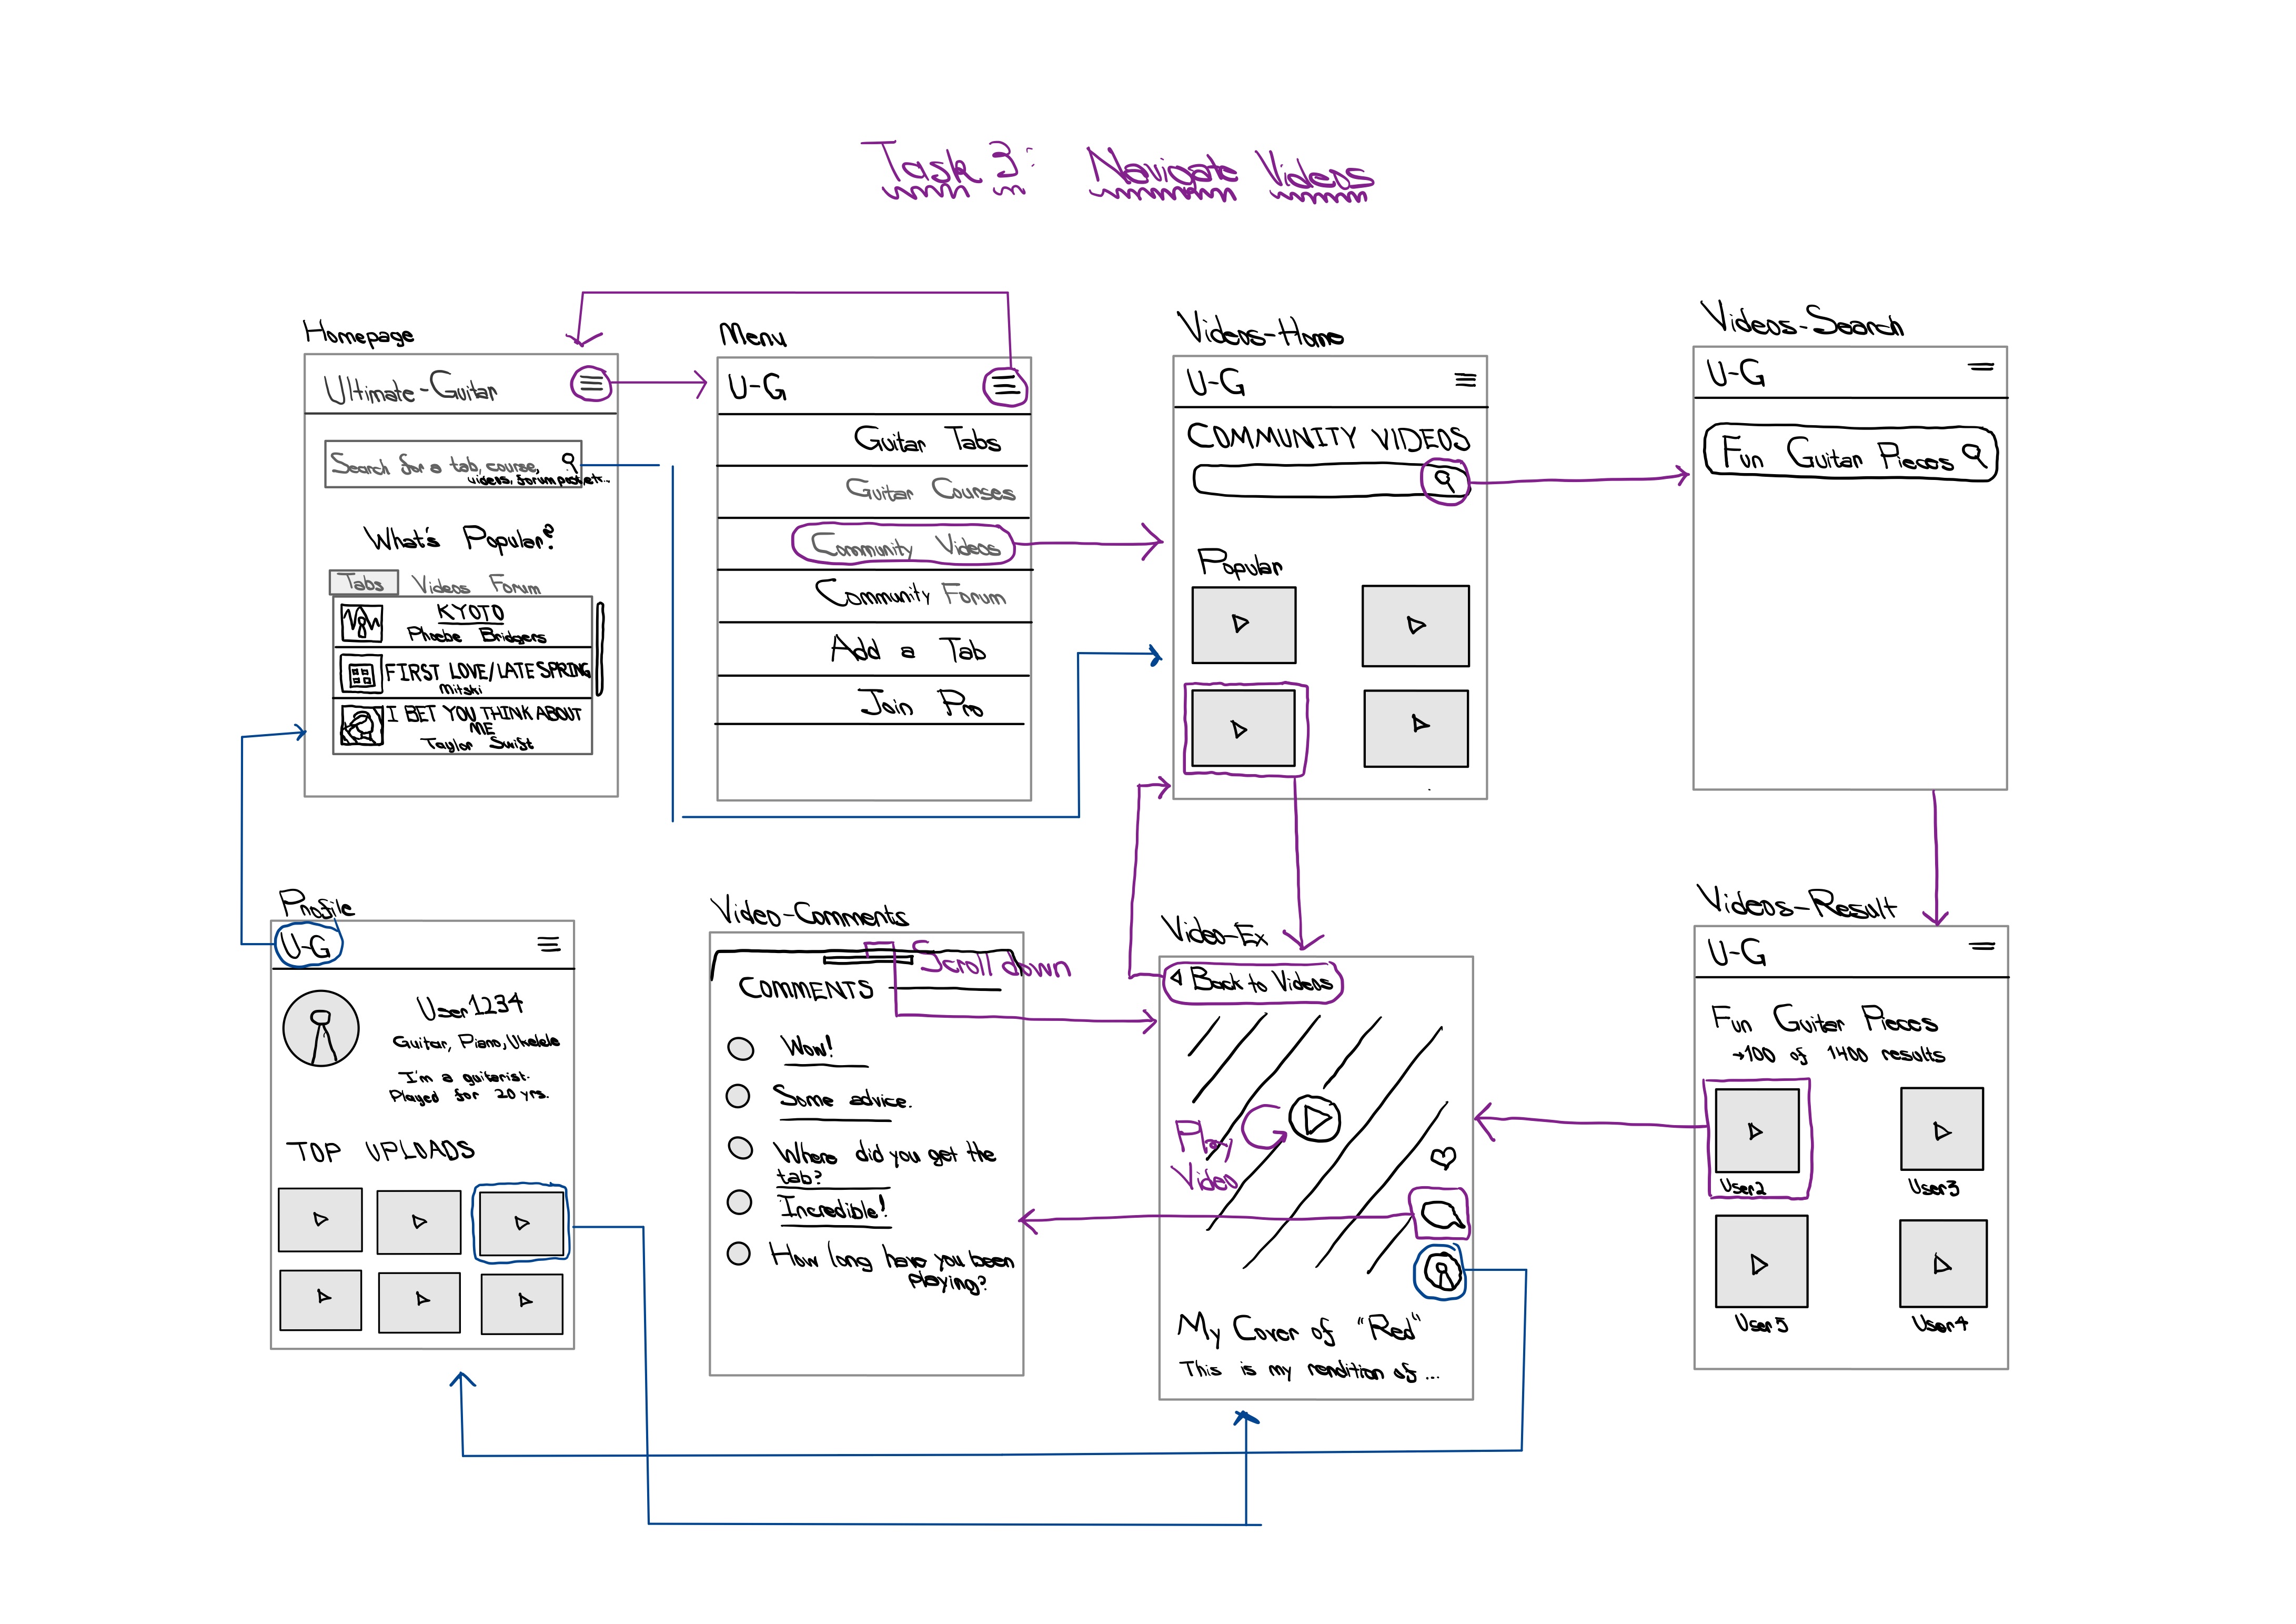 Task 3: Navigate Videos
Homepage
Ultimate-Guitar
Search for a tab, course,
videos, forum post, etc...
What's Popular?
Tabs Videos Forum
KYOTO
Phoebe Bridgers
FIRST LOVE/LATE SPRING
Mitski
I BET YOU THINK ABOUT
ME
Taylor Swift
Menu
U-G
Guitar Tabs
Guitar Courses
Community Videos
Community Forum
Add a Tab
Join Pro
Videos-Home
U-G
COMMUNITY VIDEOS
Popular
Videos-Search
U-G
Fun Guitar Pieces
Profile
U-G
User1234
Guitar, Piano, Ukelele
I'm a guitarist.
Played for 20 yrs.
TOP UPLOADS
Video-Comments
Scroll down
COMMENTS
Wow!
Some advice.
Where did you get the
tab?
Incredible!
How long have you been
playing?
Video-Ex
Back to Videos
Play
Video
My Cover of "Red"
This is my rendition of ...
Videos-Result
U-G
Fun Guitar Pieces
→100 of 1400 results
User2
User3
User5
User4